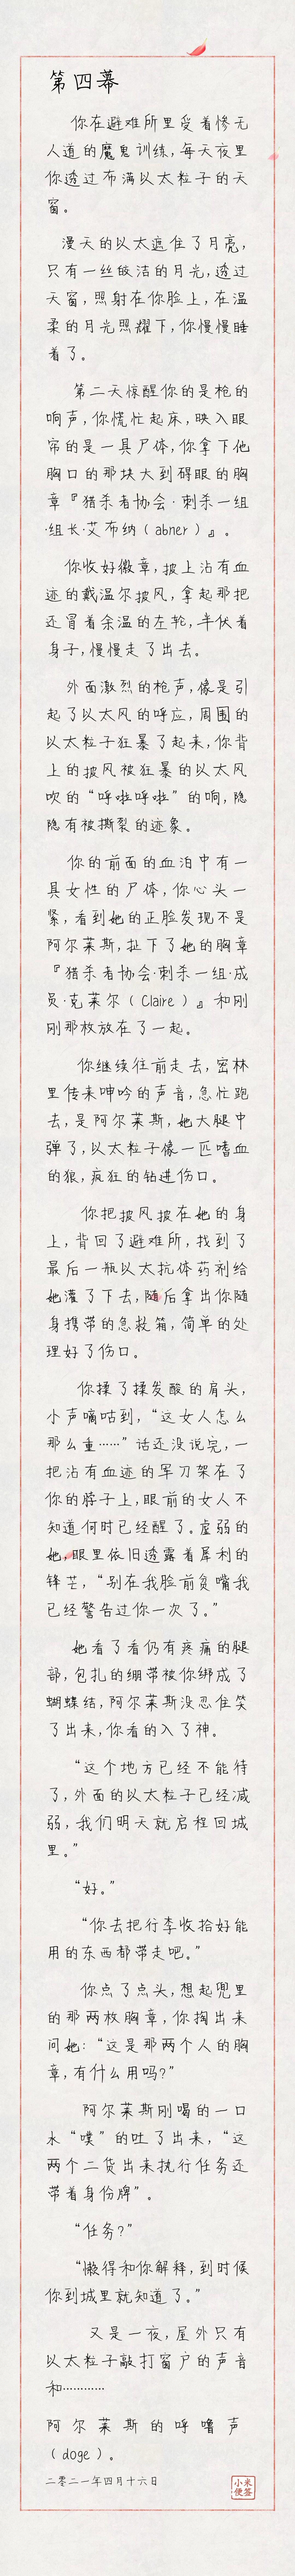 第四幕
你在避难所里受着惨无
人道的魔鬼训练,每天夜里
你透过布满以太粒子的天
窗。
漫天的以太遮住了月亮,
只有一丝皎洁的月光,透过
天窗,照射在你脸上,在温
柔的月光照耀下,你慢慢睡
着了。
第二天惊醒你的是枪的
响声,你慌忙起床,映入眼
帘的是一具尸体,你拿下他
胸口的那块大到碍眼的胸
章『猎杀者协会·刺杀一组
·组长·艾布纳(abner)』。
你收好徽章,披上沾有血
迹的戴温尔披风,拿起那把
还冒着余温的左轮,半伏着
身子,慢慢走了出去。
外面激烈的枪声,像是引
起了以太风的呼应,周围的
以太粒子狂暴了起来,你背
上的披风被狂暴的以太风
吹的“呼啦呼啦”的响,隐
隐有被撕裂的迹象。
你的前面的血泊中有一
具女性的尸体,你心头一
紧,看到她的正脸发现不是
阿尔莱斯,扯下了她的胸章
『猎杀者协会·刺杀一组·成
员·克莱尔(Claire)』和刚
刚那枚放在了一起。
你继续往前走去,密林
里传来呻吟的声音,急忙跑
去,是阿尔莱斯,她大腿中
弹了,以太粒子像一匹嗜血
的狼,疯狂的钻进伤口。
你把披风披在她的身
上,背回了避难所,找到了
最后一瓶以太抗体药剂给
她灌了下去,随后拿出你随
身携带的急救箱,简单的处
理好了伤口。
你揉了揉发酸的肩头,
小声嘀咕到,“这女人怎么
那么重……”话还没说完,一
把沾有血迹的军刀架在了
你的脖子上,眼前的女人不
知道何时已经醒了。虚弱的
她,眼里依旧透露着犀利的
锋芒,“别在我脸前贫嘴我
已经警告过你一次了。”
她看了看仍有疼痛的腿
部,包扎的绷带被你绑成了
蝴蝶结,阿尔莱斯没忍住笑
了出来,你看的入了神。
“这个地方已经不能待
了,外面的以太粒子已经减
弱,我们明天就启程回城
里。”
“好。”
“你去把行李收拾好能
用的东西都带走吧。”
你点了点头,想起兜里
的那两枚胸章,你掏出来
问她:“这是那两个人的胸
章,有什么用吗?”
阿尔莱斯刚喝的一口
水“噗”的吐了出来,“这
两个二货出来执行任务还
带着身份牌”。
“任务?”
“懒得和你解释,到时候
你到城里就知道了。”
又是一夜,屋外只有
以太粒子敲打窗户的声音
和…………
阿尔莱斯的呼噜声
(doge)。
二零二一年四月十六日
小米
便签